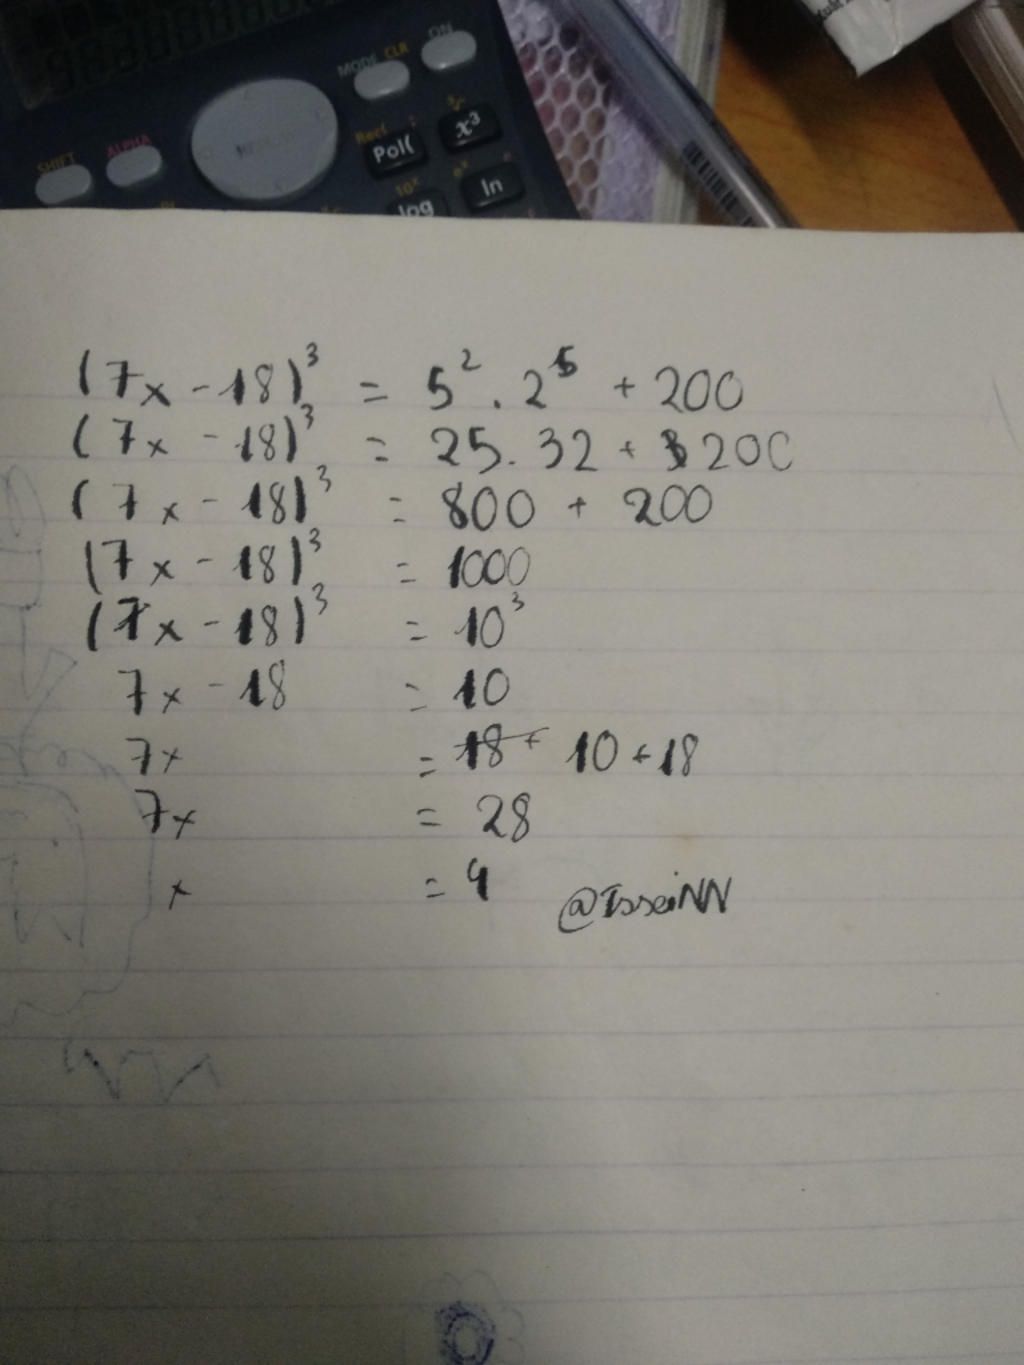 MODE CLR ON
SHIFT ALPHA Rec( : Pol( x³
10ˣ eˣ e
log ln
(7x - 18)³ = 5² . 2⁵ + 200
(7x - 18)³ = 25.32 + 200
(7x - 18)³ = 800 + 200
(7x - 18)³ = 1000
(7x - 18)³ = 10³
7x - 18 = 10
7x = 18 + 10 + 18
7x = 28
x = 4 @IsseiNN